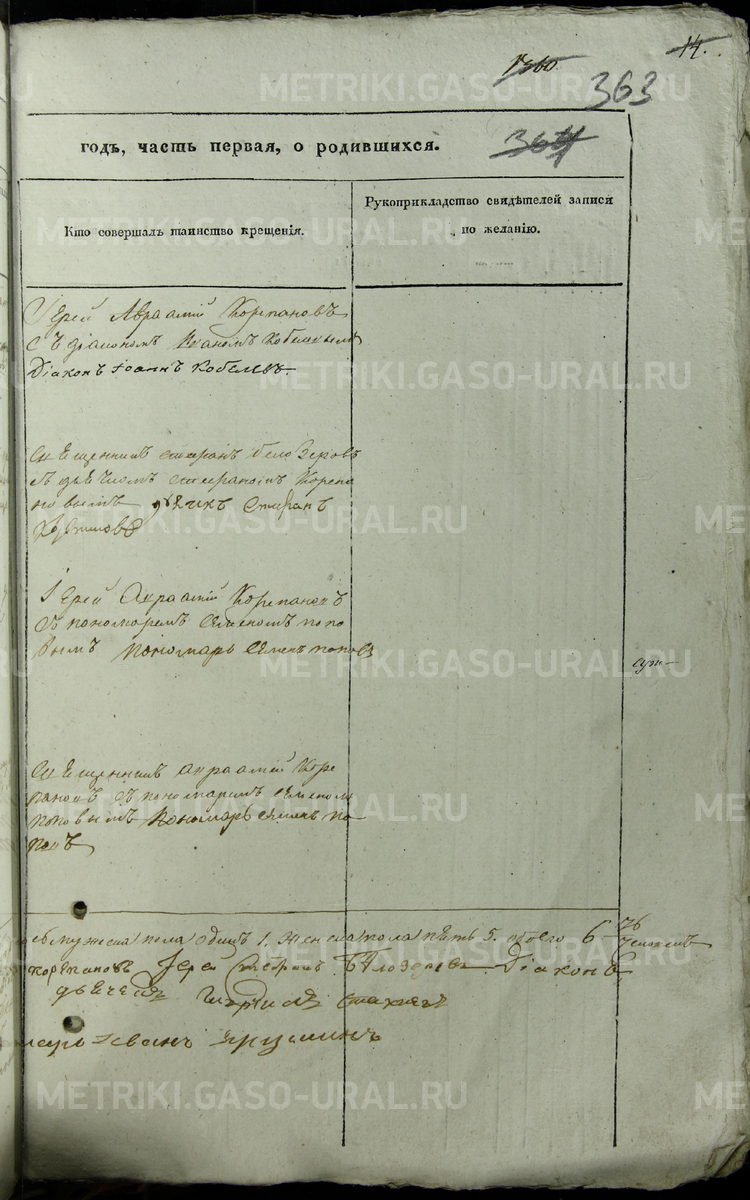 14.
1360.
363
364
годъ, часть первая, о родившихся.
Кто совершалъ таинство крещенія.
Рукоприкладство свидѣтелей записи
по желанію.
Іерей Авраамій Корепановъ
съ діакономъ Иваномъ Кобелевымъ
Діаконъ Іоаннъ Кобелевъ.
Священникъ Стефанъ Белозеровъ
съ дьячкомъ Стефаномъ Корепа
новымъ дьячекъ Стефанъ
Іерей Авраамій Корепановъ
съ пономаремъ Семеномъ попо
вымъ пономарь Семенъ поповъ
Священникъ Авраамій Коре
пановъ съ пономаремъ Семеномъ
поповымъ Пономарь Семенъ по
повъ
мужеска пола одинъ 1. женска пола пять 5. обоего 6
человекъ
Корепановъ Іерей Стефанъ Бѣлозеровъ Діаконъ
дьячекъ
Иванъ
METRIKI.GASO-URAL.RU